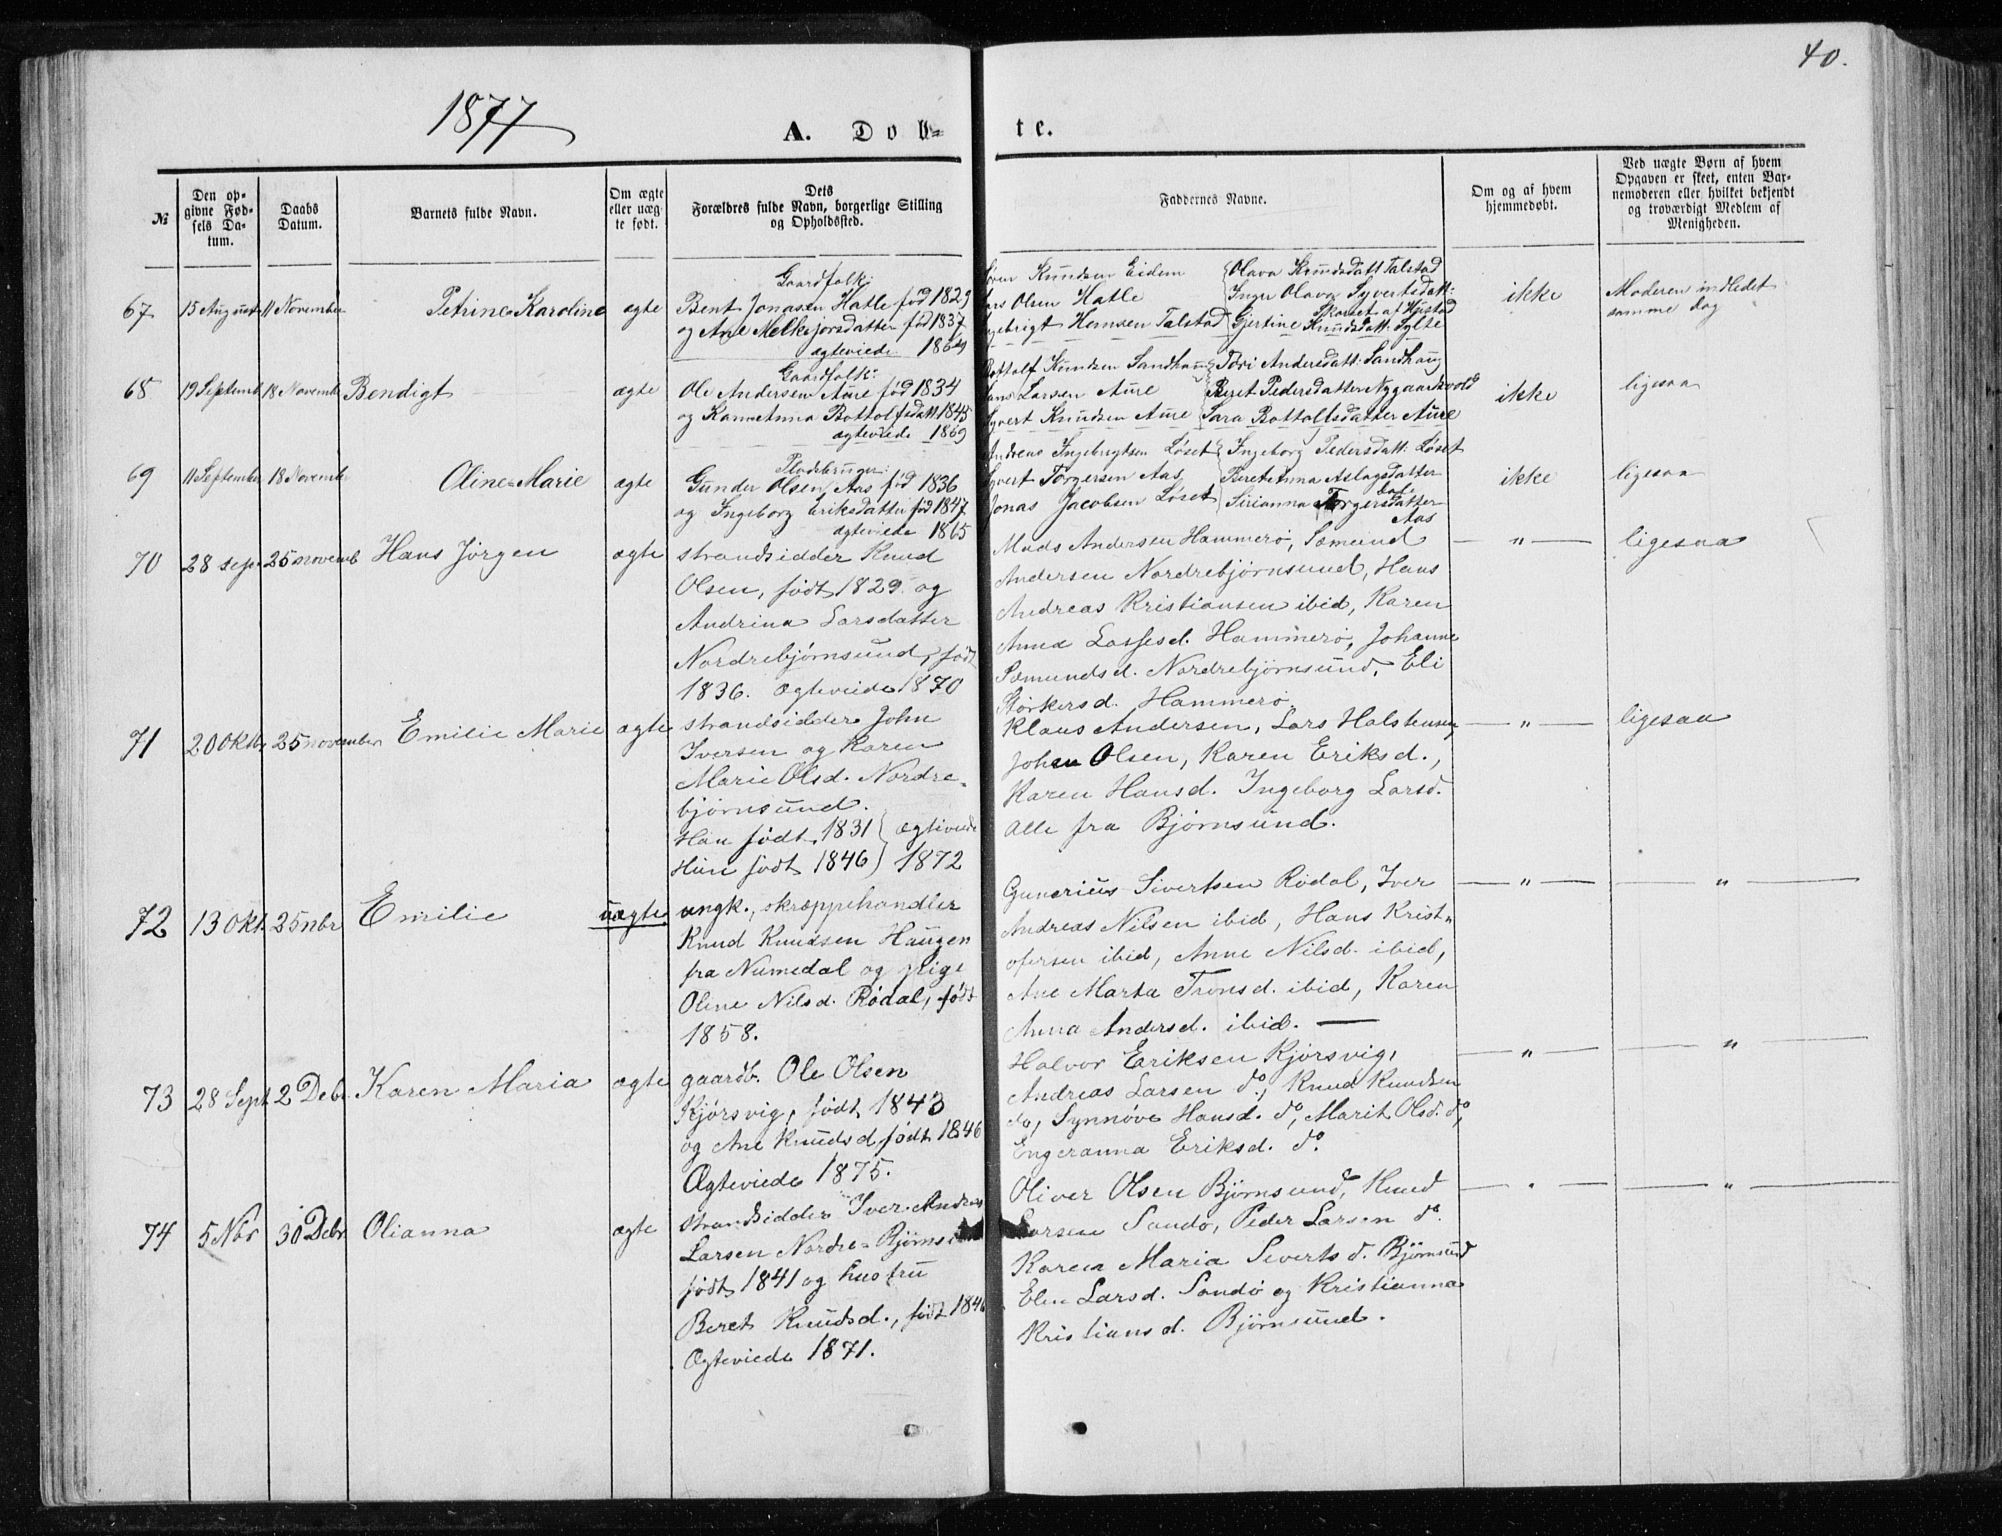 40.
1877
A. Døb-
te.
№
Den op-
givne Fød-
sels Da-
tum.
Daabs
Datum.
Barnets fulde Navn.
Om ægte
eller uæg-
te født.
Dets
Forældres fulde Navn, borgerlige Stilling
og Opholdssted.
Faddernes Navne.
Om og af hvem
hjemmedøbt.
Ved uægte Børn af hvem
Opgaven er skeet, enten Bar-
nemoderen eller hvilket bekjendt
og troværdigt Medlem af
Menigheden.
67
15 August
11 November
Petrine Karoline
ægte
Gaardfolk:
Bent Jonasen Hatle fød 1829
og Ane Melkjorsdatter fød 1837
ægteviede 1864
Søren Knudsen Eidem
Lars Olsen Hatle
Ingebrigt Hemsen Talstad
Olava Knudsdatt Talstad
Inger Olava Syvertsdatt:
Skaret af Hustad
Gjertine Knudsdatt: Sylte
ikke
Moderen indledet
samme dag
68
19 Septemb
18 Novemb
Bendigt
ægte
Gaardfolk:
Ole Andersen Aure fød 1834
og Karen Anna Bottolfsdatt 1845
ægteviede 1869
Bottolf Knudsen Sandhaug
Hans Larsen Aure
Syvert Knudsen Aure
Tori Andersdatt: Sandhaug
Beret Pedersdatter Nygaardsvold
Sara Bottolfsdatter Aure
ikke
ligesaa
69
11 September
18 November
Oline Marie
ægte
Pladsbruger:
Gunder Olsen Aas fød 1836
og Ingeborg Eriksdatter fød 1847
ægteviede 1865
Andreas Ingebrigtsen Løset
Syvert Torgersen Aas
Jonas Jacobsen Løset
Ingeborg Pedersdatt: Løset
Beret Anna Aslagsdatter
Sirianna Torgersdatter
Aas
ikke
ligesaa
70
28 sep.
25 novemb
Hans Jørgen
ægte
strandsidder Knud
Olsen, født 1829 og
Andrina Larsdatter
Nordrebjørnsund, født
1836. Ægteviede 1870
Mads Andersen Hammerø, Sæmund
Andersen Nordrebjørnsund, Hans
Andreas Kristiansen ibid, Karen
Anna Lassesd. Hammerø, Johanne
Sæmundsd. Nordrebjørnsund, Eli
Størkersd. Hammerø
— " —
ligesaa
71
20 Oktb
25 november
Emilie Marie
ægte
strandsidder John
Iversen og Karen
Marie Olsd. Nordre-
bjørnsund.
Han født 1831 } ægteviede
Hun født 1846 } 1872
Klaus Andersen, Lars Halstensen,
Johan Olsen, Karen Eriksd.,
Karen Hansd. Ingeborg Larsd.
alle fra Bjørnsund.
— " —
ligesaa
72
13 Okt.
25 nbr
Emilie
uægte
ungk., skræppehandler
Knud Knudsen Haugen
fra Numedal og pige
Oline Nilsd. Rødal, født
1858.
Gunerius Sivertsen Rødal, Iver
Andreas Nilsen ibid, Hans Krist-
ofersen ibid, Anne Nilsd. ibid,
Ane Marta Tronsd. ibid, Karen
Anna Andersd. ibid. —
— " —
— " —
73
28 Sept
2 Debr
Karen Maria
ægte
gaardb. Ole Olsen
Kjørsvig, født 1843
og Ane Knudsd. født 1846
Ægteviede 1875.
Halvor Eriksen Kjørsvig,
Andreas Larsen do, Knud Knudsen
do, Synnøve Hansd. do, Marit Olsd. do,
Engeranna Eriksd. do.
— " —
"
74
5 Nbr
30 Debr
Olianna
ægte
strandsidder Iver Andreas
Larsen Nordre-Bjørnsund
født 1841 og hustru
Beret Knudsd., født 1846
Ægteviede 1871.
Oliver Olsen Bjørnsund, Knud
Larsen Sandø, Peder Larsen do.
Karen Maria Sivertsd. Bjørnsund
Elen Larsd. Sandø og Kristianna
Kristiansd. Bjørnsund.
— " —
— " —